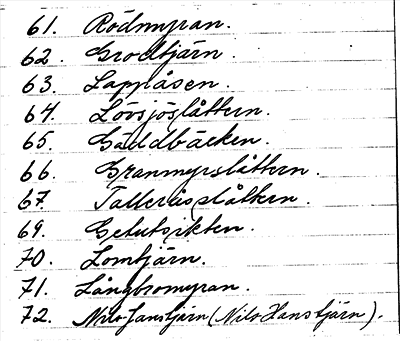 61. Rödmyran.
62. Grodtjärn.
63. Lappåsen.
64. Lövsjöslåttern.
65. Gäddbäcken.
66. Granmyrslåttern.
67. Talleråsslåttern.
69.
70. Lomtjärn.
71. Långbromyran.
72. Nils Janstjärn (Nils Hanstjärn).